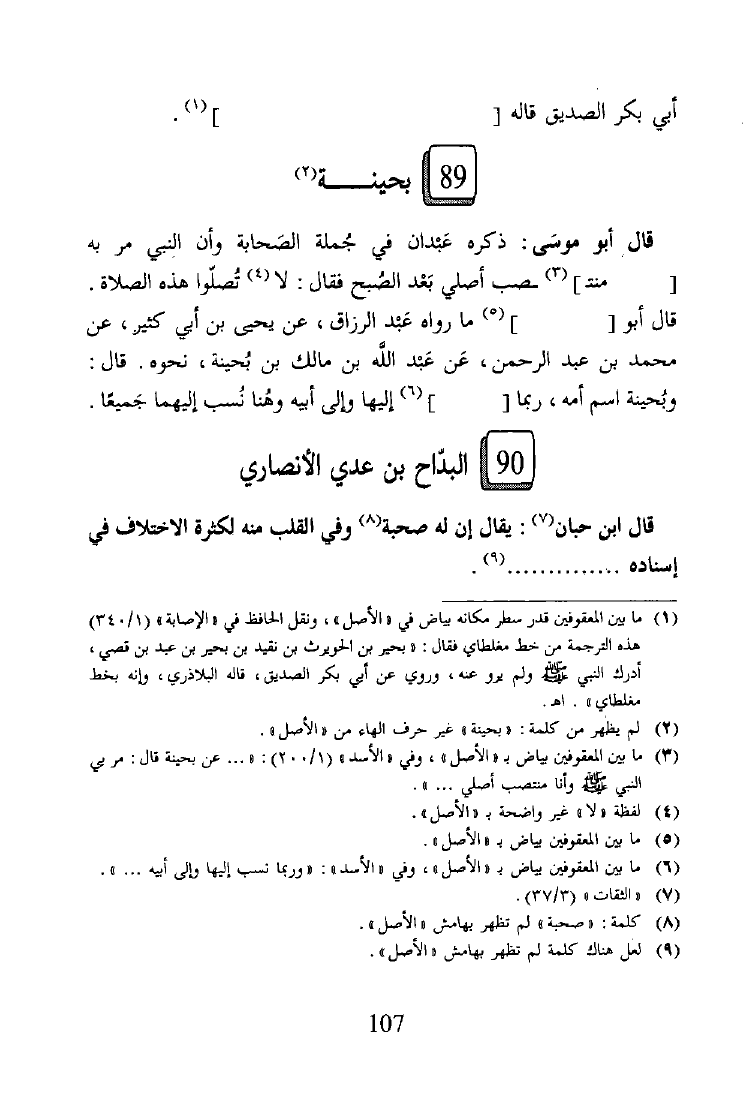 أبي بكر الصديق قاله [ ](١) .
89 بحينــــة(٢)
قال أبو موسَى : ذكره عَبْدان في جُملة الصَحابة وأن النبي مر به
[ منتـ ](٣) ـصب أصلي بَعْد الصُبح فقال : لا(٤) تُصلّوا هذه الصلاة .
قال أبو [ ](٥) ما رواه عَبْد الرزاق ، عن يحيى بن أبي كثير ، عن
محمد بن عبد الرحمن ، عَن عَبْد اللَّه بن مالك بن بُحينة ، نحوه . قال :
وبُحينة اسم أمه ، ربما [ ](٦) إليها وإلى أبيه وهُنا نُسب إليهما جَميعًا .
90 البدّاح بن عدي الأنصاري
قال ابن حبان(٧) : يقال إن له صحبة(٨) وفي القلب منه لكثرة الاختلاف في
إسناده ..............(٩) .
(١) ما بين المعقوفين قدر سطر مكانه بياض في «الأصل» ، ونقل الحافظ في «الإصابة» (٣٤٠/١)
هذه الترجمة من خط مغلطاي فقال : «بحير بن الحويرث بن نقيد بن بحير بن عبد بن قصي ،
أدرك النبي ﷺ ولم يرو عنه ، وروي عن أبي بكر الصديق ، قاله البلاذري ، وإنه بخط
مغلطاي» . اهـ .
(٢) لم يظهر من كلمة : «بحينة» غير حرف الهاء من «الأصل» .
(٣) ما بين المعقوفين بياض بـ «الأصل» ، وفي «الأسد» (٢٠٠/١) : «... عن بحينة قال : مر بي
النبي ﷺ وأنا منتصب أصلي ... » .
(٤) لفظة «لا» غير واضحة بـ «الأصل» .
(٥) ما بين المعقوفين بياض بـ «الأصل» .
(٦) ما بين المعقوفين بياض بـ «الأصل» ، وفي «الأسد» : «وربما نسب إليها وإلى أبيه ... » .
(٧) «الثقات» (٣٧/٣) .
(٨) كلمة : «صحبة» لم تظهر بهامش «الأصل» .
(٩) لعل هناك كلمة لم تظهر بهامش «الأصل» .
107